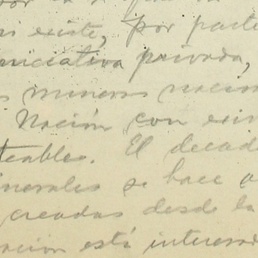 existe, por parte
iniciativa privada,
mineros nacion
Nación con exis
teables. El decad
minerales se hace a
creadas desde la
ación está interesad